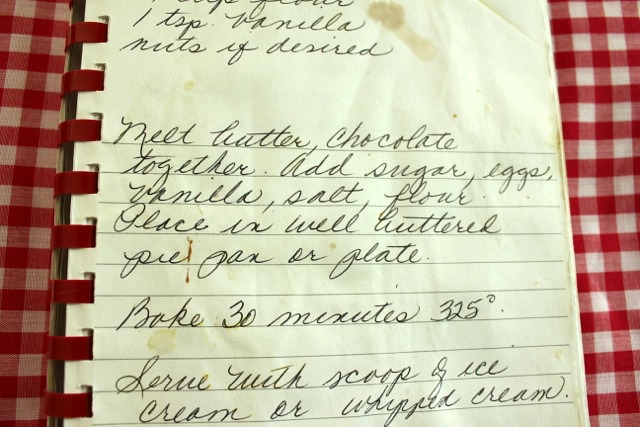 1 cup flour
1 tsp. Vanilla
nuts if desired
Melt butter, chocolate
together. Add sugar, eggs,
Vanilla, salt, flour.
Place in well buttered
pie pan or plate.
Bake 30 minutes 325°.
Serve with scoop of ice
cream or whipped cream.